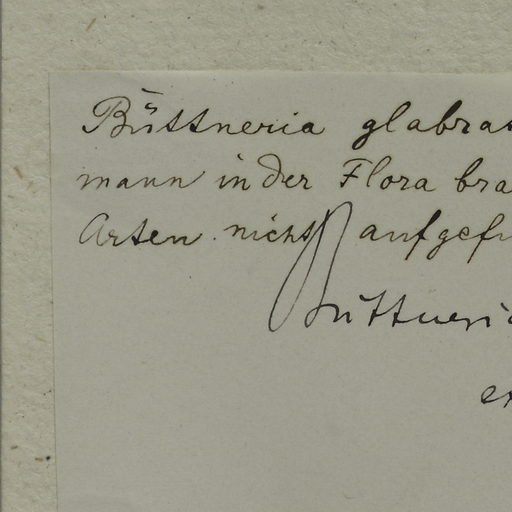 Büttneria glabras
mann in der Flora bra
Arten nicht aufgefü
Büttneria
ex